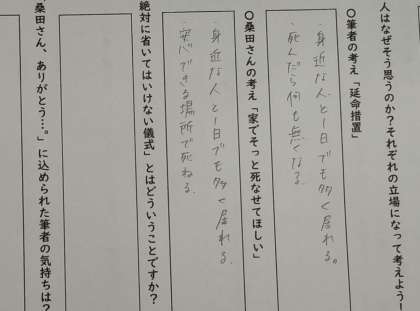 人はなぜそう思うのか?それぞれの立場になって考えよう!
〇筆者の考え「延命措置」
身近な人と1日でも多く居れる。
・死んだら何も無くなる。
〇桑田さんの考え「家でそっと死なせてほしい」
・身近な人と1日でも多く居れる。
・安心できる場所で死ねる。
絶対に省いてはいけない儀式」とはどういうことですか?
桑田さん、ありがとう…。」に込められた筆者の気持ちは?